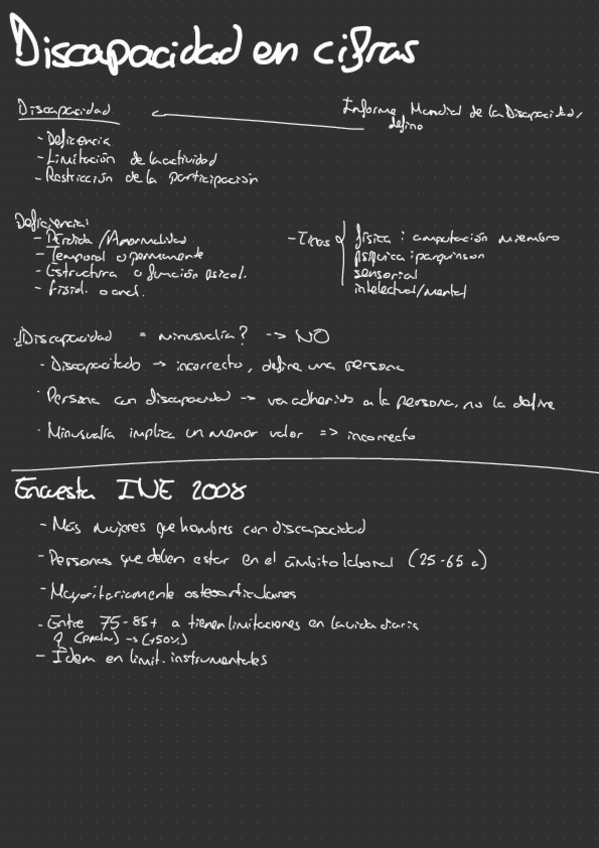 Discapacidad en cifras
Discapacidad
Informe Mundial de la Discapacidad,
define
- Deficencia
- Limitación de la actividad
- Restricción de la participación
Deficiencia:
- Pérdida / Anormalidad
- Temporal o permanente
- Estructura o función psicol.
- fisiol. o anat.
- Tipos
física : amputación miembro
psíquica : parquinson
sensorial
intelectual/mental
¿Discapacidad = minusvalía? -> NO
- Discapacitado -> incorrecto, define una persona
· Persona con discapacidad -> va adherido a la persona, no la define
· Minusvalía implica un menor valor => incorrecto
Encuesta INE 2008
- Más mujeres que hombres con discapacidad
- Personas que deben estar en el ámbito laboral (25-65 a)
- Mayoritariamente osteoarticulares
- Entre 75-85+ a tienen limitaciones en la vida diaria
-> (+50%)
- Ídem en limit. instrumentales